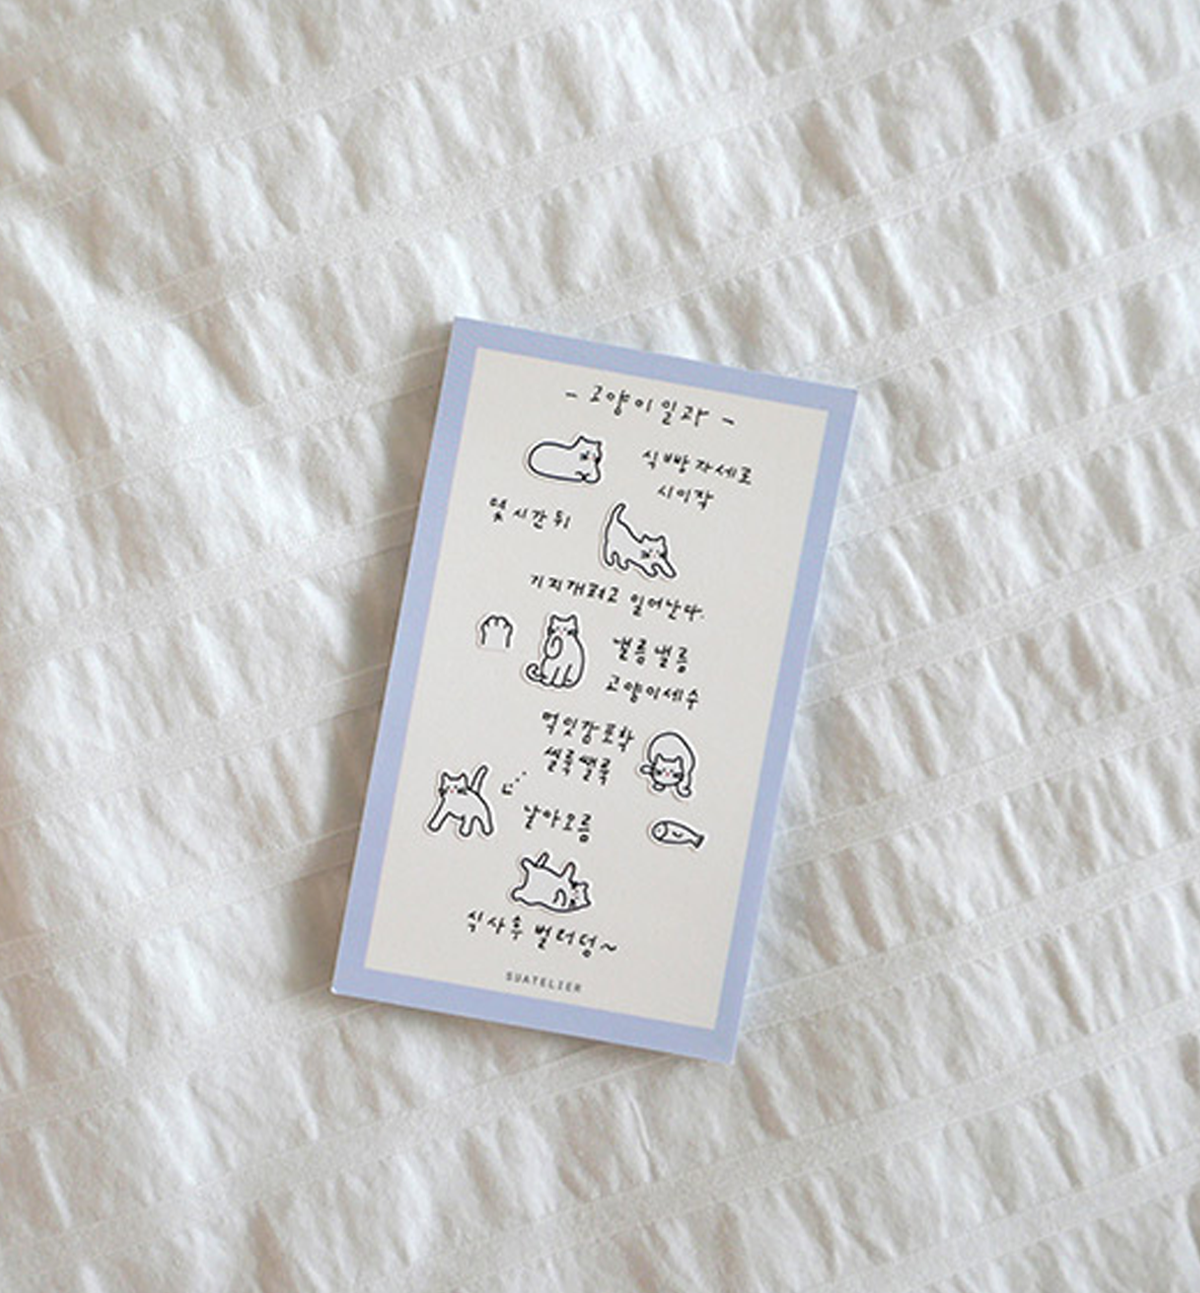 - 고양이 일과 -
식빵자세로
시이작
몇 시간 뒤
기지개펴고 일어난다.
낼름낼름
고양이세수
먹잇감포착
씰룩쌜룩
날아오름
식사후 벌러덩~
SUATELIER